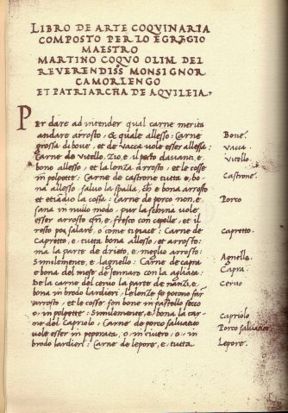 LIBRO DE ARTE COQVINARIA
COMPOSTO PER LO EGREGIO
MAESTRO
MARTINO COQVO OLIM DEL
REVERENDISS MONSIGNOR
CAMORLENGO
ET PATRIARCHA DE AQVILEIA.
Per dare ad intender qual carne merita
andare arrosto, & quale allesso: Carne
grossa di boue, et de vacca vole esser allessa: Boue.
Carne de vitello, zio, e il petto dauanti, e vacca
bono allesso, et la lonza arrosto, et le cosse Vitello.
in polpette: Carne de castrone tutta e, bo
na allesso saluo la spalla, che e bona arrosto Castrone.
et etiādio la cossa: Carne de porco non, e
sana in nullo modo, pur la schina vole Porco
esser arrosto, e, fresca con cepolle, et il
resto poi salare, o come ti piace: Carne de
Capretto, e, tutta bona allesso, et arrosto: Capretto.
ma la parte de drieto, e, meglio arrosto:
Similemente, e, lagnello: Carne de capra Agnello
e bona del mese de Jennaro con la agliata: Capra
De la carne del ceruo la parte denanzi, e, Ceruo
bona in brodo lardieri: Le lonze se potono far
arrosto, et le cosse son bone in
o, in polpette: Similemente, e, bona la car-
ne del Capriolo: Carne de porco saluatico Capriolo
vole esser in peperata, o in ciuero, o in Porco saluatico
brodo lardieri: Carne de lepore, e, tutta Lepore.